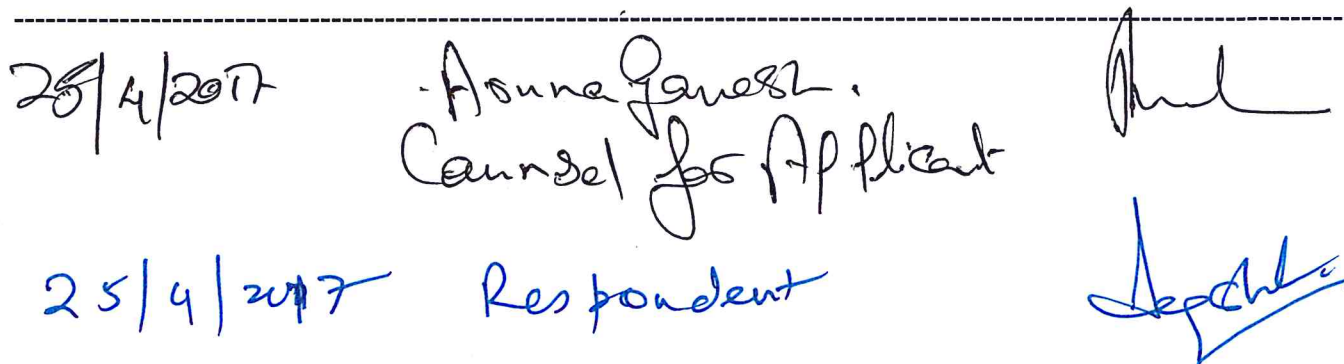 25/4/2017 Aruna Ganesh.
Counsel for Applicant
25/4/2017 Respondent